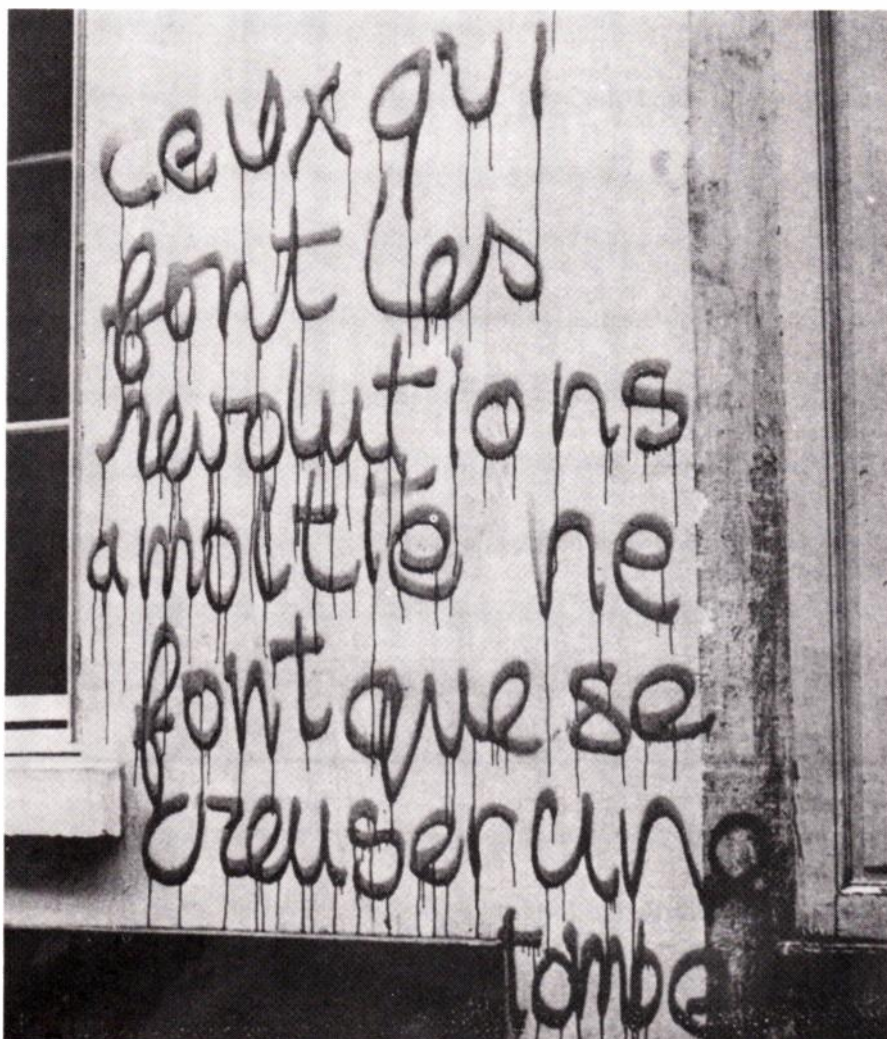 ceux qui
font les
revolutions
a moitie ne
font que se
creuser une
tombe